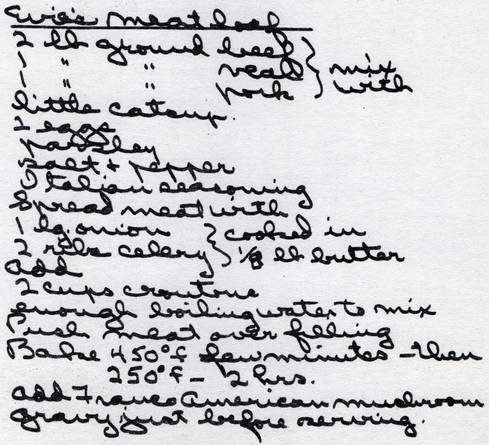 Evie's meat loaf
2 lb ground beef
1 " " veal } mix
1 " " pork } with
little catsup.
2 eggs
parsley
salt + pepper
Italian seasoning
Spread meat with
1 lg. onion } cooked in
2 ribs celery } 1/8 lb butter
add
2 cups croutons
enough boiling water to mix
Push meat over filling
Bake 450°f few minutes - then
250°f - 2 hrs.
add Franco American mushroom
gravy just before serving.